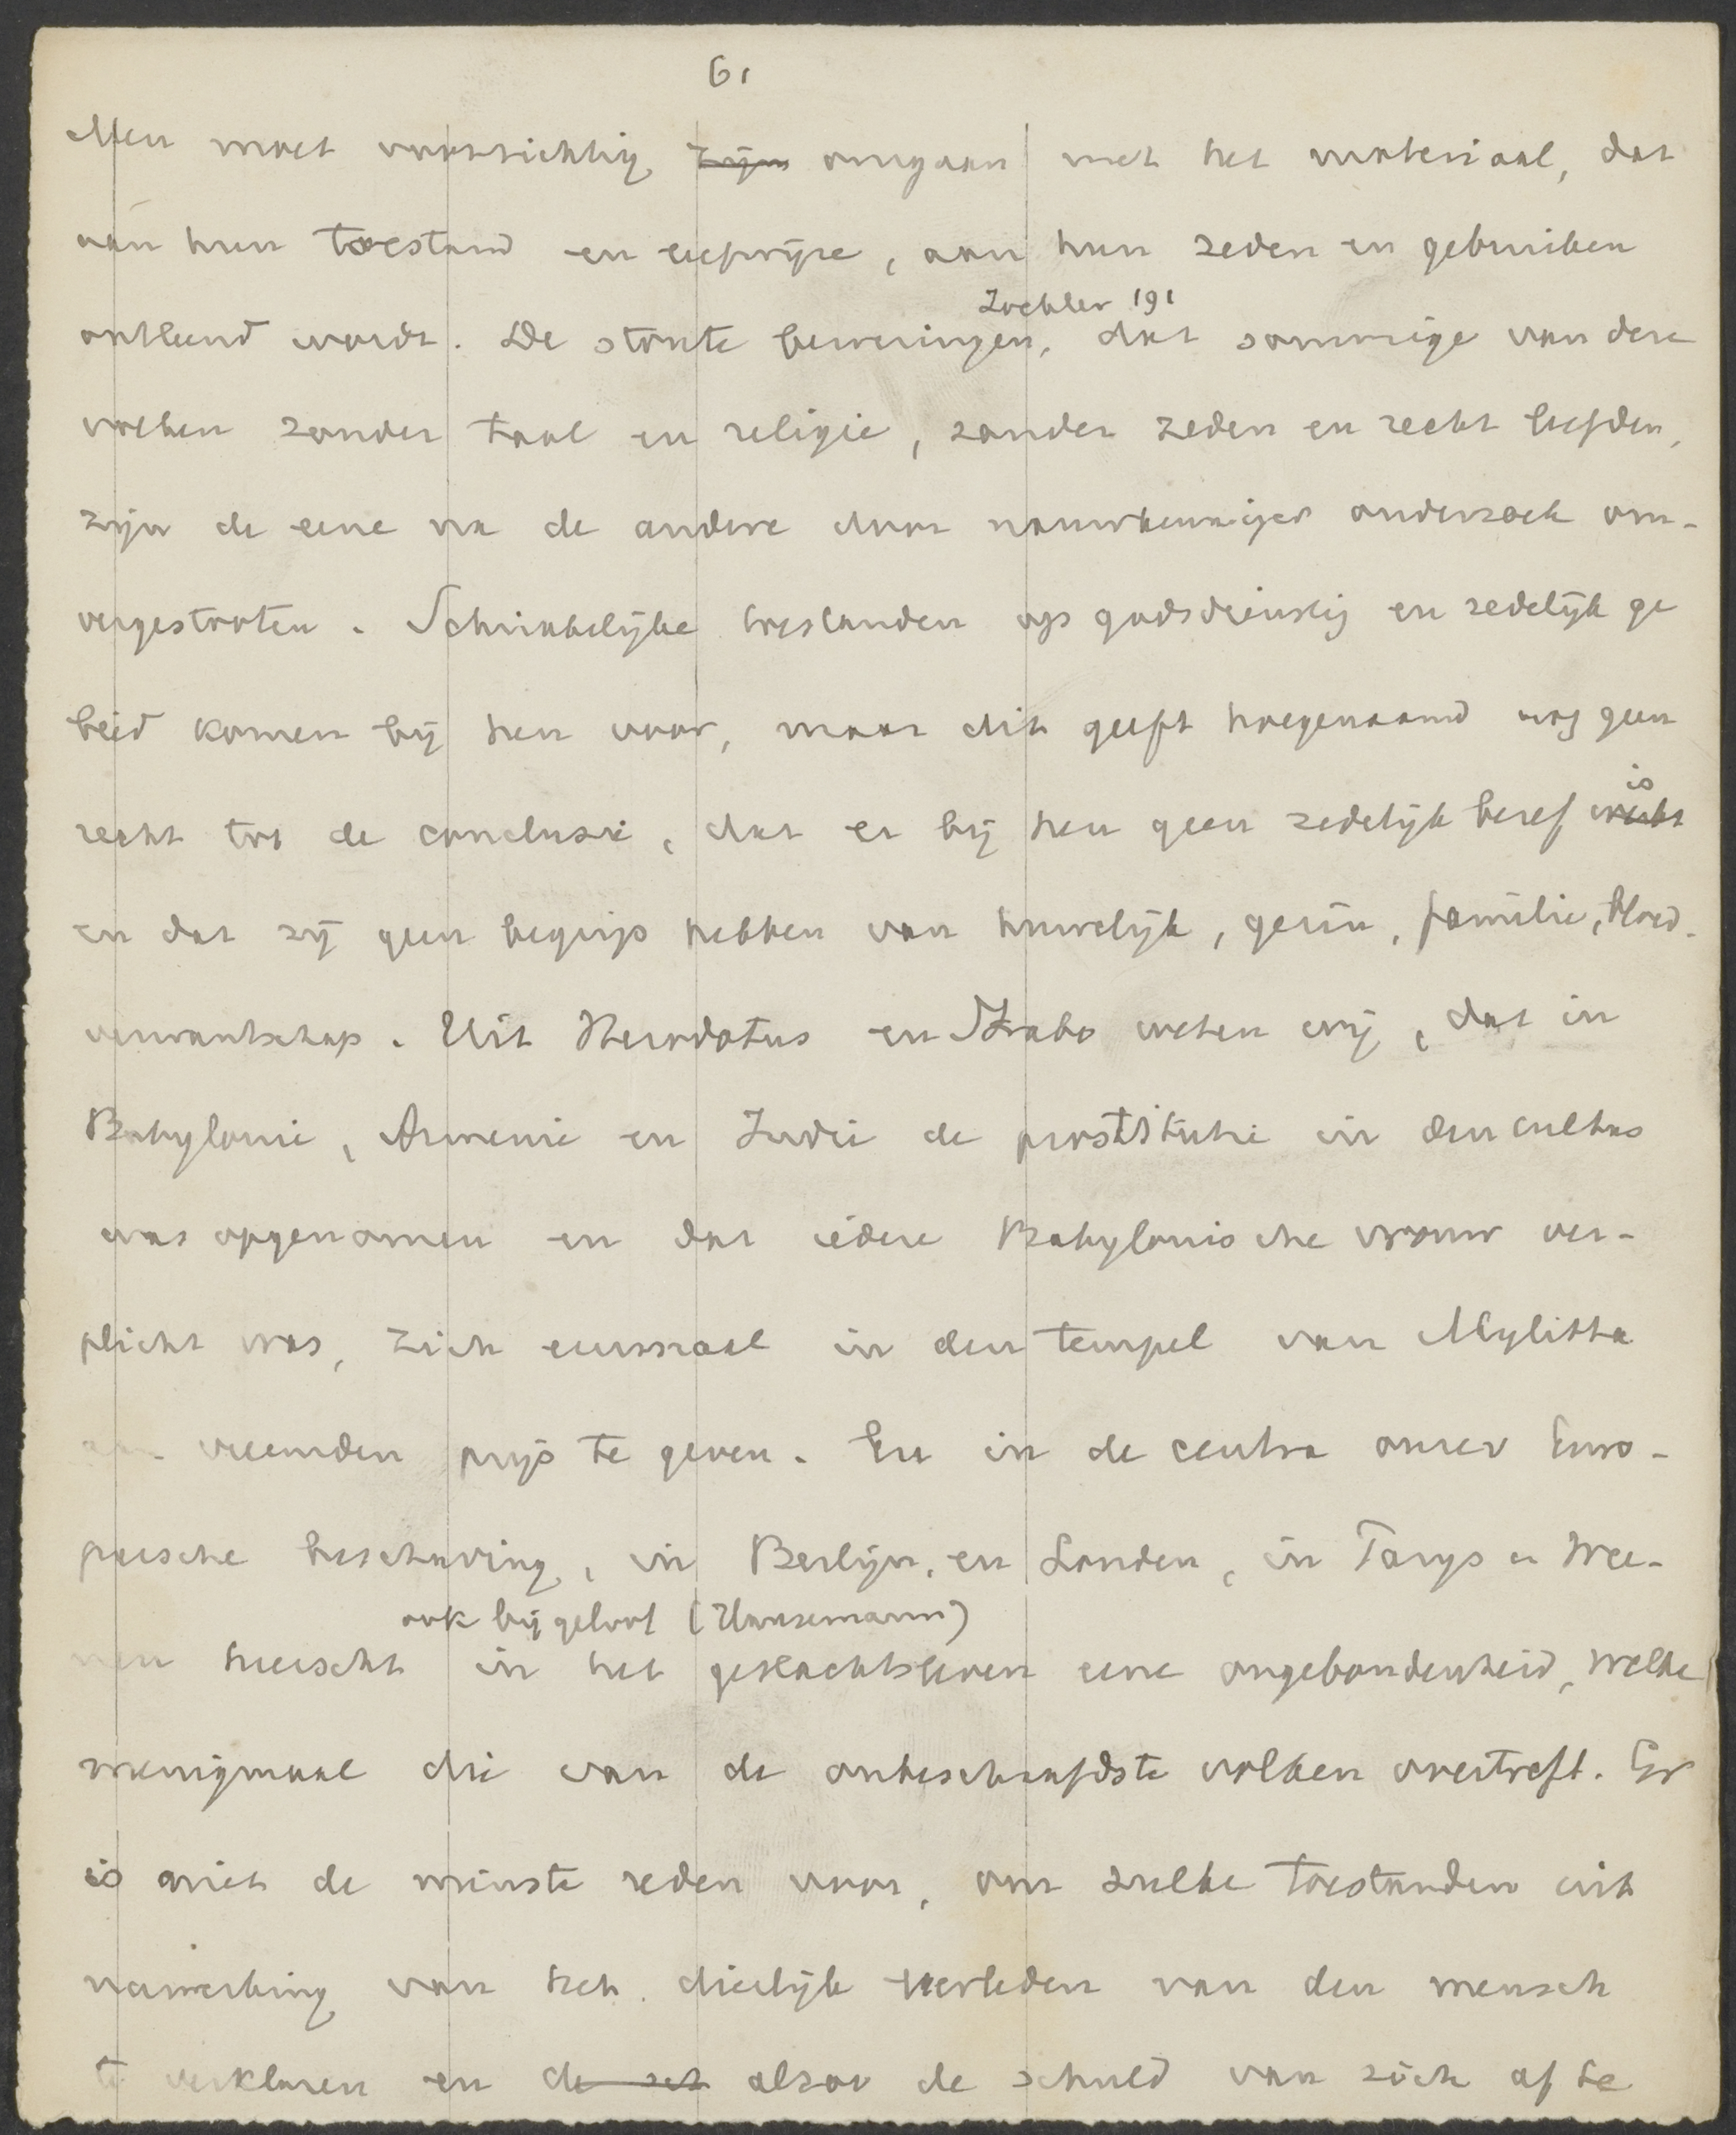 61
Men moet voorzichtig zijn omgaan met het materiaal, dat
aan hun toestand en leefwijze, aan hun zeden en gebruiken
Zöckler 191
ontleend wordt. De stoute beweringen, dat sommige van deze
volken zonder taal en religie, zonder zeden en recht leefden,
zijn de eene na de andere door nauwkeuriger onderzoek om-
vergestooten. Schrikkelijke toestanden op godsdienstig en zedelijk ge
bied komen bij hen voor, maar dit geeft hoegenaamd nog geen
is
recht tot de conclusie, dat er bij hen geen zedelijk besef
en dat zij geen begrip hebben van huwelijk, gezin, familie, bloed-
verwantschap. Uit Herodotus en Strabo weten wij, dat in
Babylonie, Armenie en Indië de prostitutie in den cultus
was opgenomen en dat iedere Babylonische vrouw ver-
plicht was, zich eenmaal in den tempel van Mylitta
aan vreemden prijs te geven. En in de centra onzer Euro-
peesche beschaving, in Berlijn, en Londen, in Parijs en Wee-
ook bijgeloof (Hansemann)
nen heerscht in het geslachtsleven eene ongebondenheid, welke
menigmaal die van de onbeschaafdste volken overtreft. Er
is niet de minste reden voor, om zulke toestanden uit
nawerking van het dierlijk verleden van den mensch
te verklaren en de alzoo de schuld van zich af te